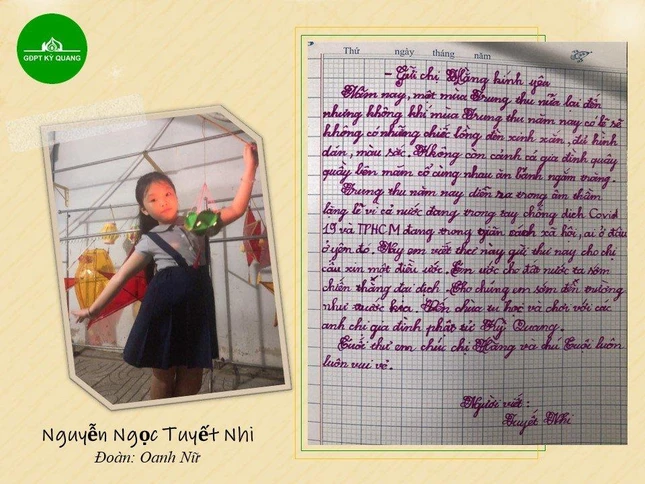 GDPT KỲ QUANG
Thứ ngày tháng năm
- Gửi chị Hằng kính yêu
Năm nay, một mùa Trung thu nữa lại đến
nhưng không khí mùa Trung thu năm nay có lẽ sẽ
không có những chiếc lồng đèn xinh xắn, đủ hình
dán, màu sắc. Không còn cảnh cả gia đình quây
quầy bên mâm cỗ cùng nhau ăn bánh ngắm trăng.
Trung thu năm nay diễn ra trong âm thầm
lặng lẽ vì cả nước đang trong tay chống dịch Covid
19 và TPHCM đang trong giãn cách xã hội, ai ở đâu
ở yên đó. Nay em viết thư này gửi thư nay cho chị
cầu xin một điều ước. Em ước cho đất nước ta sớm
chiến thắng đại dịch. Cho chúng em sớm đến trường
như trước kia. Đến chùa tu học và chơi với các
anh chị gia đình phật tử Kỳ Quang.
Cuối thư em chúc chị Hằng và chú Cuội luôn
luôn vui vẻ.
Người viết:
Tuyết Nhi
Nguyễn Ngọc Tuyết Nhi
Đoàn: Oanh Nữ